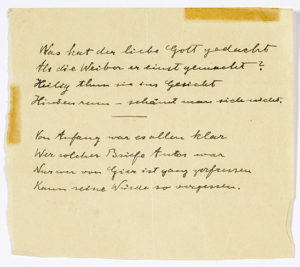 Was hat der liebe Gott gedacht
Als die Weiber er einst gemacht?
Heilig thun sie ins Gesicht
Hinten rum – schämt man sich nicht.
Von Anfang war es allen klar
Wer solcher Briefe Autor war
Nur wer von Gier ist ganz zerfressen
Kann seine Würde so vergessen.